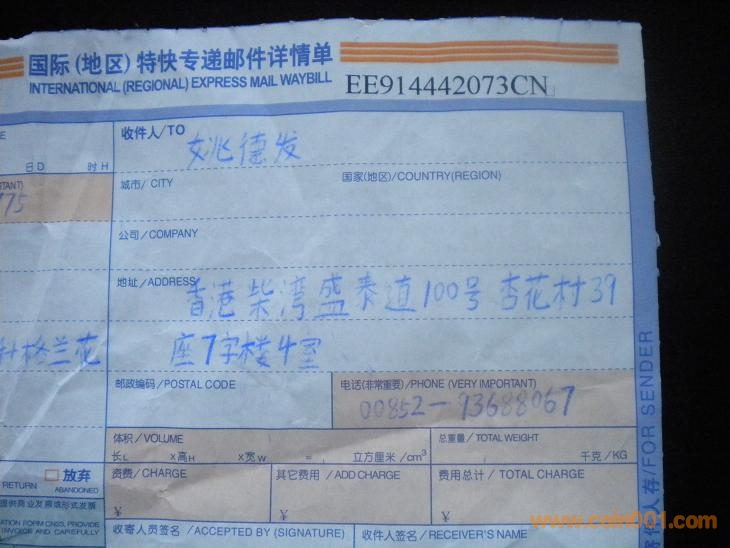 国际(地区)特快专递邮件详情单
INTERNATIONAL (REGIONAL) EXPRESS MAIL WAYBILL
EE914442073CN
收件人/TO
姚德发
日D 时H
城市/ CITY
国家(地区)/COUNTRY(REGION)
TANT)
775
公司/ COMPANY
地址/ ADDRESS
香港柴湾盛泰道100号杏花村39
格兰花
座7字楼4室
邮政编码/ POSTAL CODE
电话(非常重要)/PHONE (VERY IMPORTANT)
00852-93688067
体积/ VOLUME
长L x高H x宽W = 立方厘米/cm³
总重量/ TOTAL WEIGHT
千克/KG
RETURN
放弃
ABANDONED
资费/ CHARGE
¥
其它费用/ ADD CHARGE
¥
费用总计/ TOTAL CHARGE
¥
提供商业发票或形式发票
ATION FORM CN23, PROVIDE
INVOICE AND CAREFULLY
收寄人员签名/ ACCEPTED BY (SIGNATURE)
收件人签名/ RECEIVER'S NAME
寄件人存/FOR SENDER
www.coin001.com